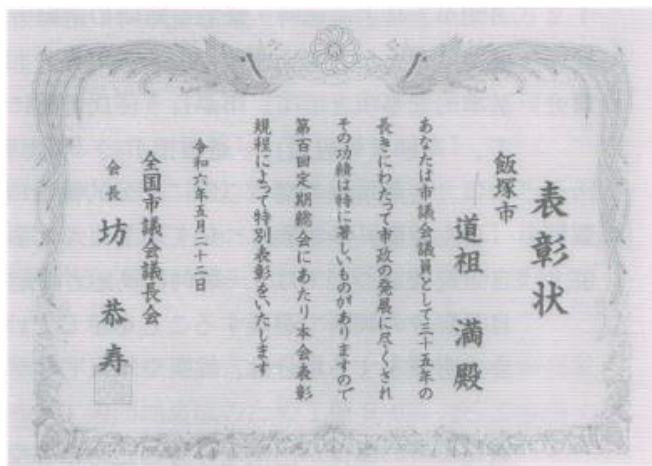 表彰状
飯塚市
道祖 満 殿
あなたは市議会議員として三十五年の
長きにわたって市政の発展に尽くされ
その功績は特に著しいものがありますので
第百回定期総会にあたり本会表彰
規程によって特別表彰をいたします
令和六年五月二十二日
全国市議会議長会
会長 坊 恭寿